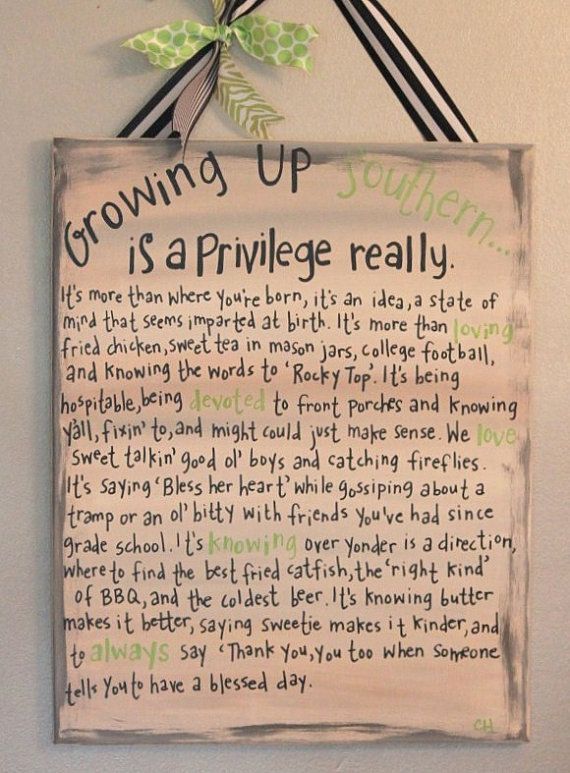 Growing Up Southern...
is a Privilege really.
It's more than where you're born, it's an idea, a state of
mind that seems imparted at birth. It's more than loving
fried chicken, sweet tea in mason jars, college football,
and knowing the words to 'Rocky Top'. It's being
hospitable, being devoted to front porches and knowing
y'all, fixin' to, and might could just make sense. We love
sweet talkin' good ol' boys and catching fireflies.
It's saying 'Bless her heart' while gossiping about a
tramp or an ol' bitty with friends you've had since
grade school. It's knowing over yonder is a direction,
where to find the best fried catfish, the 'right kind'
of BBQ, and the coldest beer. It's knowing butter
makes it better, saying sweetie makes it kinder, and
to always say 'Thank you, you too when someone
tells you to have a blessed day.
CH